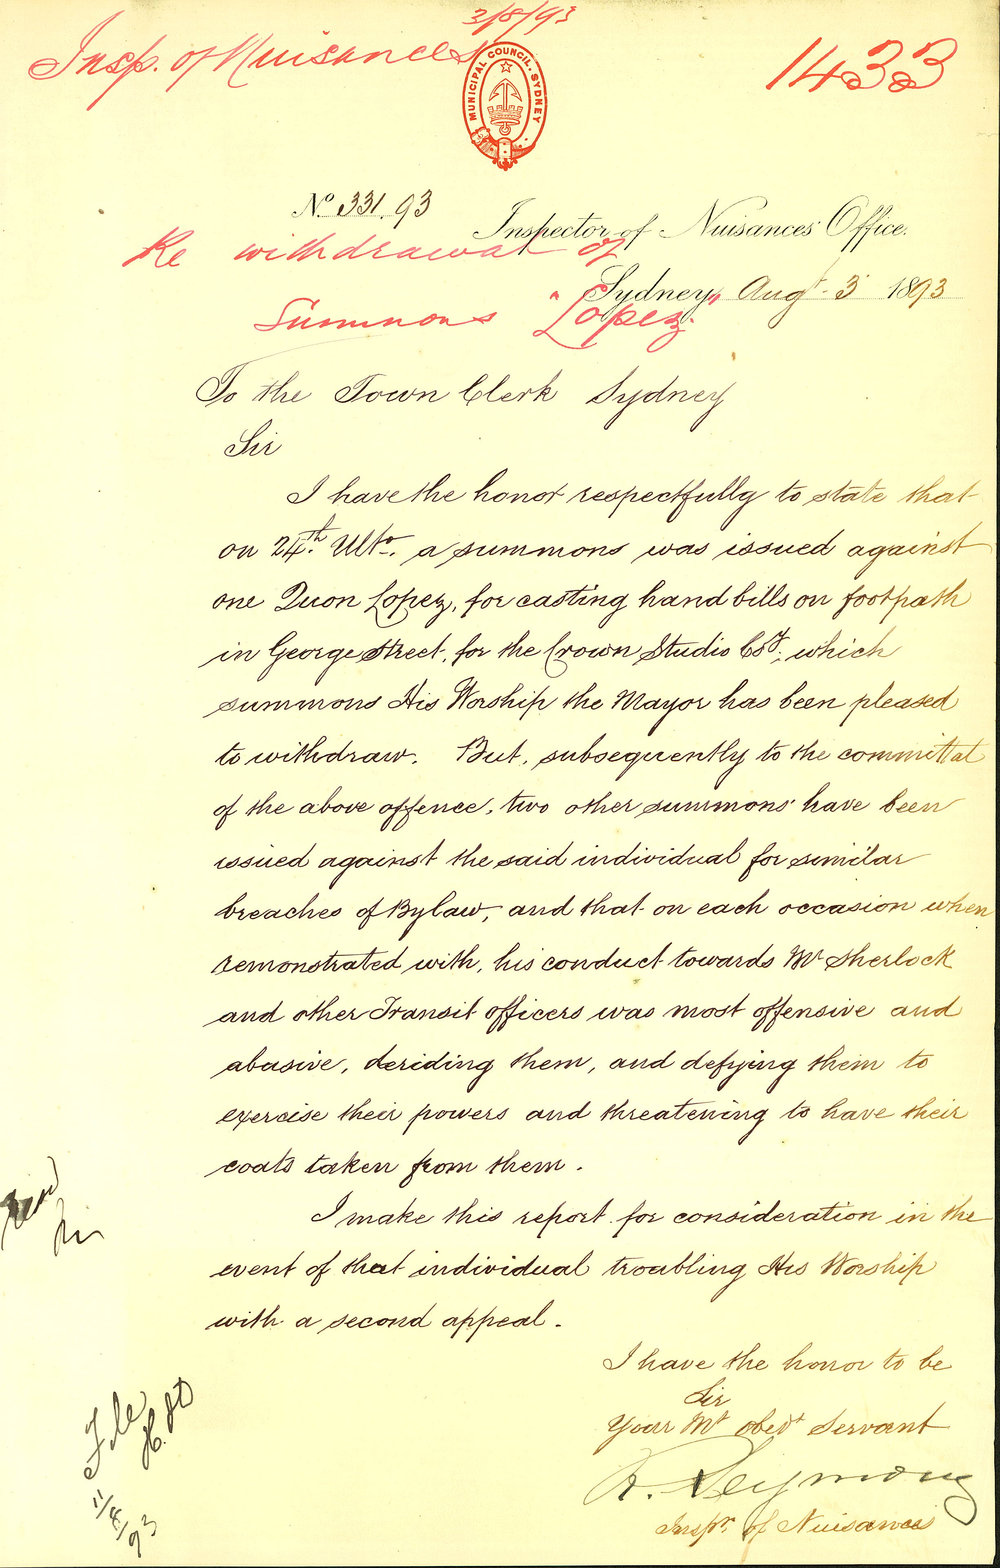 3/8/93
Insp. of Nuisances
1433
MUNICIPAL COUNCIL. SYDNEY
No. 331.93
Inspector of Nuisances Office.
Re withdrawal of
Sydney, Augt. 3 1893
Summons "Lopez"
To the Town Clerk Sydney
Sir
I have the honor respectfully to state that
on 24th. Ulto. a summons was issued against
one Quon Lopez, for casting hand bills on footpath
in George Street, for the Crown Studio Coy; which
summons His Worship the Mayor has been pleased
to withdraw. But, subsequently to the committal
of the above offence, two other summons have been
issued against the said individual for similar
breaches of Bylaw, and that on each occasion when
remonstrated with, his conduct towards Mr Sherlock
and other Transit officers was most offensive and
abusive, deriding them, and defying them to
exercise their powers and threatening to have their
coats taken from them.
I make this report for consideration in the
event of that individual troubling His Worship
with a second appeal.
I have the honor to be
Sir
Your Mt obedt Servant
R. Seymour
Inspr. of Nuisances
File
11/8/93